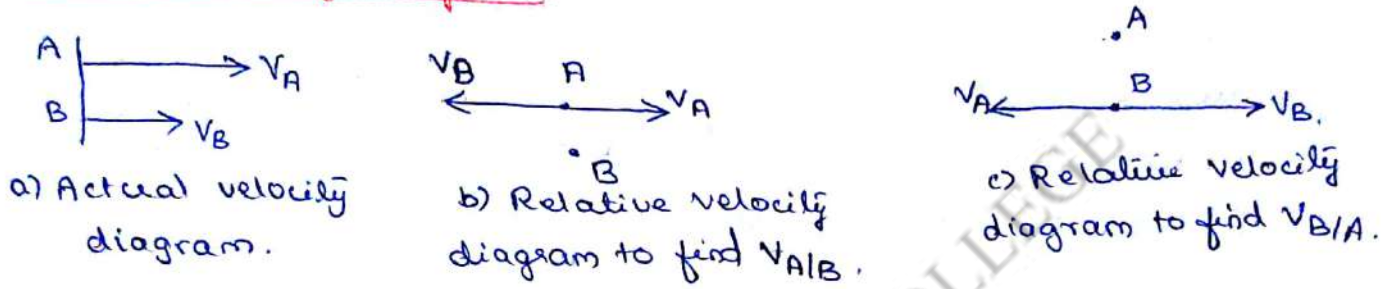 A V_A
B V_B
a) Actual velocity
diagram.
V_B A V_A
B
b) Relative velocity
diagram to find V_A/B.
A
V_A B V_B.
c) Relative velocity
diagram to find V_B/A.
COLLEGE